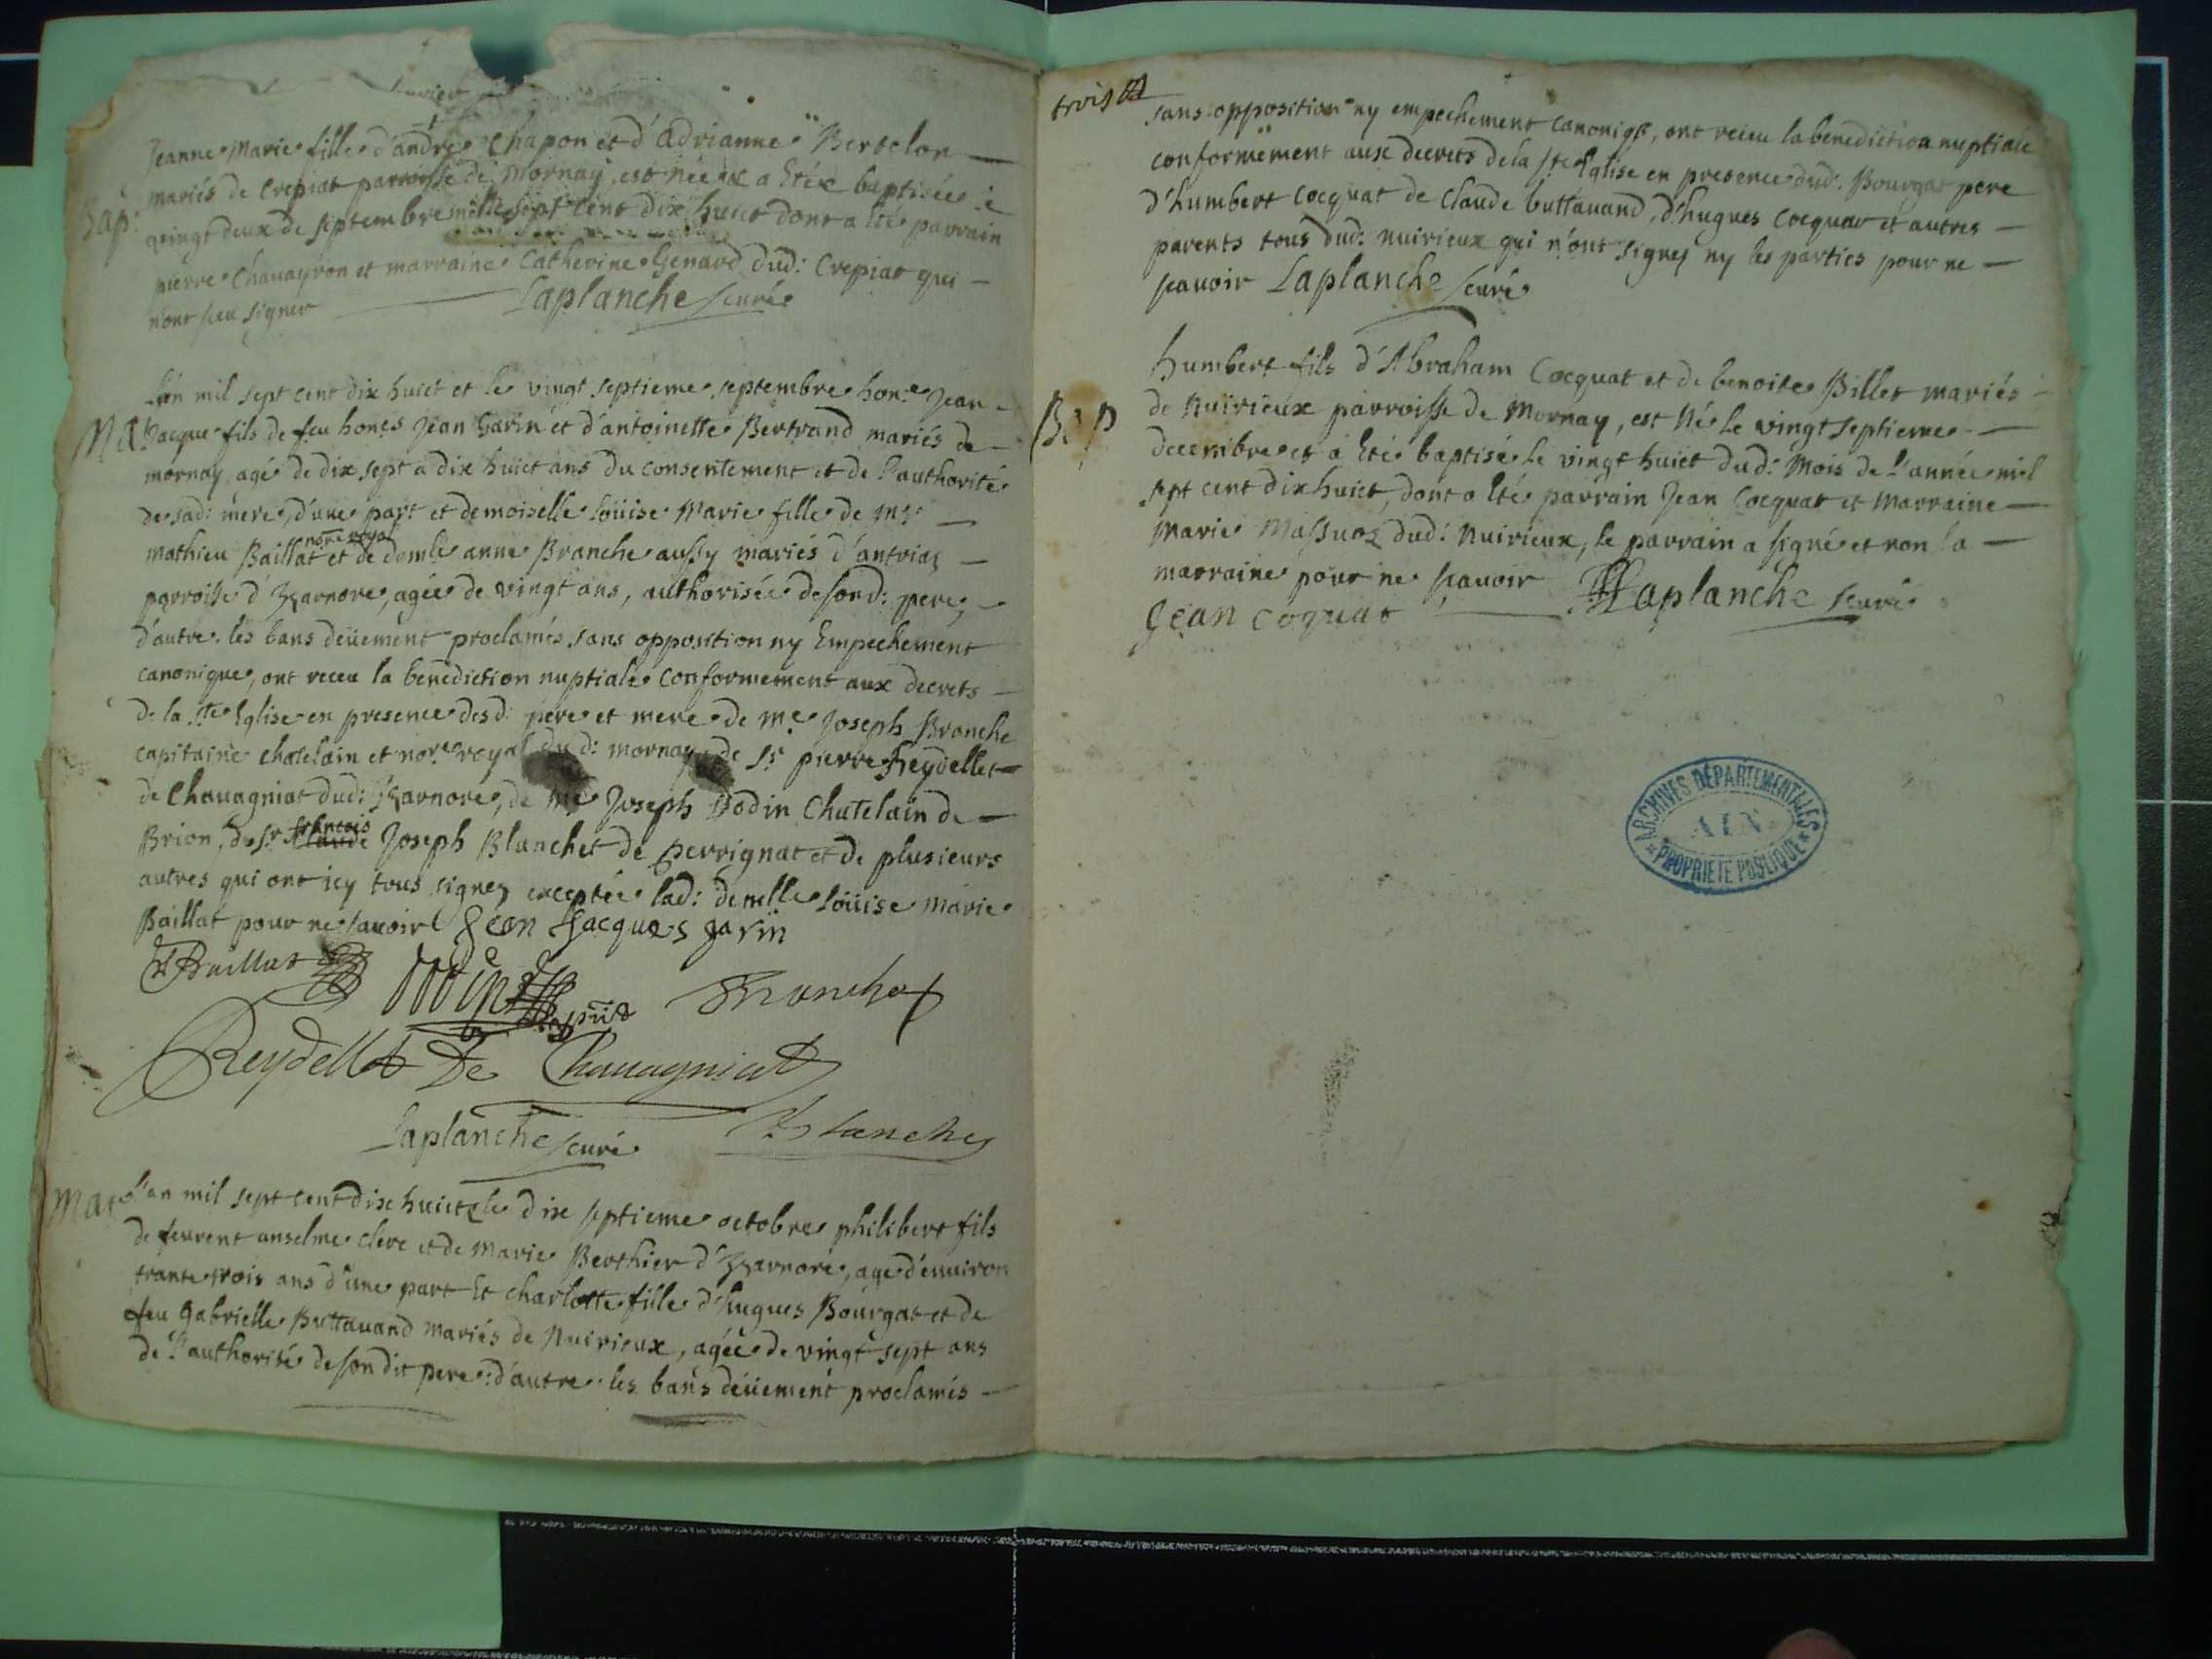 Bap:
Jeanne Marie fille d'andré Chapon et d'Adrianne Bertelon
mariés de Crepiat parroisse de Mornay, est née et a Eté baptisée le
vingt deux de septembre mille sept cent dix huict dont a Eté parrain
pierre Chavayron et marraine Catherine Genard dud: Crepiat qui
n'ont sceu signer Laplanche curé
Mar
L'an mil sept cent dix huict et le vingt septieme septembre hon.e Jean
Jacque fils de feu hones Jean Garin et d'antoinette Bertrand mariés de
mornay, agé de dix sept a dix huict ans du consentement et de l'authorité
de sad: mere, d'une part et demoiselle Loüise Marie fille de Me
nore royal
mathieu Baillat et de demlle anne Branche aussy mariés d'antrias
parroisse d'Izarnore, agée de vingt ans, authorisée de sond: pere,
d'autre. les bans deüement proclamés, sans opposition ny Empechement
canonique, ont receu la benediction nuptiale conformement aux decrets
de la Ste Eglise en presence desd: pere et mere de me Joseph Branche
capitaine chatelain et nore royal dud: mornay, de Sr pierre Reydellet
de Chavagniat dud: Izarnore, de me Joseph Bodin Chatelain de
francois
Brion, de Sr Claude Joseph Blanchet de Perrignat et de plusieurs
autres qui ont icy tous signez exceptée lad: demlle Loüise Marie
Baillat pour ne savoir Jean Jacques garin
Baillat Branche
Reydellet De Chavagniat
Laplanche curé Blanchet
Mar
L'an mil sept cent dix huict le dix septieme octobre philibert fils
de anselme clerc et de Marie Berthier d'Izarnore, agé d'environ
trante trois ans d'une part Et charlotte fille d'hugues Bourgat et de
feu Gabrielle Buttavand mariés de Nuirieux, agée de vingt sept ans
de l'authorité de son dit pere d'autre les bans deüement proclamés
trois
sans opposition ny empechement canoniqe, ont receu la benediction nuptiale
conformement aux decrets de la Ste Eglise en presence dud: Bourgat pere
d'humbert Cocquat de Claude buttavand, d'hugues Cocquat et autres
parents tous dud: nuirieux qui n'ont signez ny les parties pour ne
scavoir Laplanche curé
Bap
humbert fils d'Abraham Cocquat et de benoite Billet mariés
de Nuirieux parroisse de Mornay, est Né le vingt septieme
decembre et a Eté baptisé le vingt huict dud: Mois de l'année mil
sept cent dix huict, dont a Eté parrain Jean Cocquat et Marraine
Marie Massuoz dud: Nuirieux, le parrain a signé et non la
marraine pour ne scavoir Laplanche curé
Jean coquat
ARCHIVES DÉPARTEMENTALES
AIN
PROPRIETE PUBLIQUE